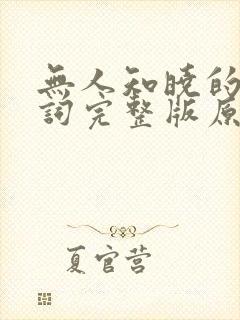 無人知曉的
詞完整版原
夏官营